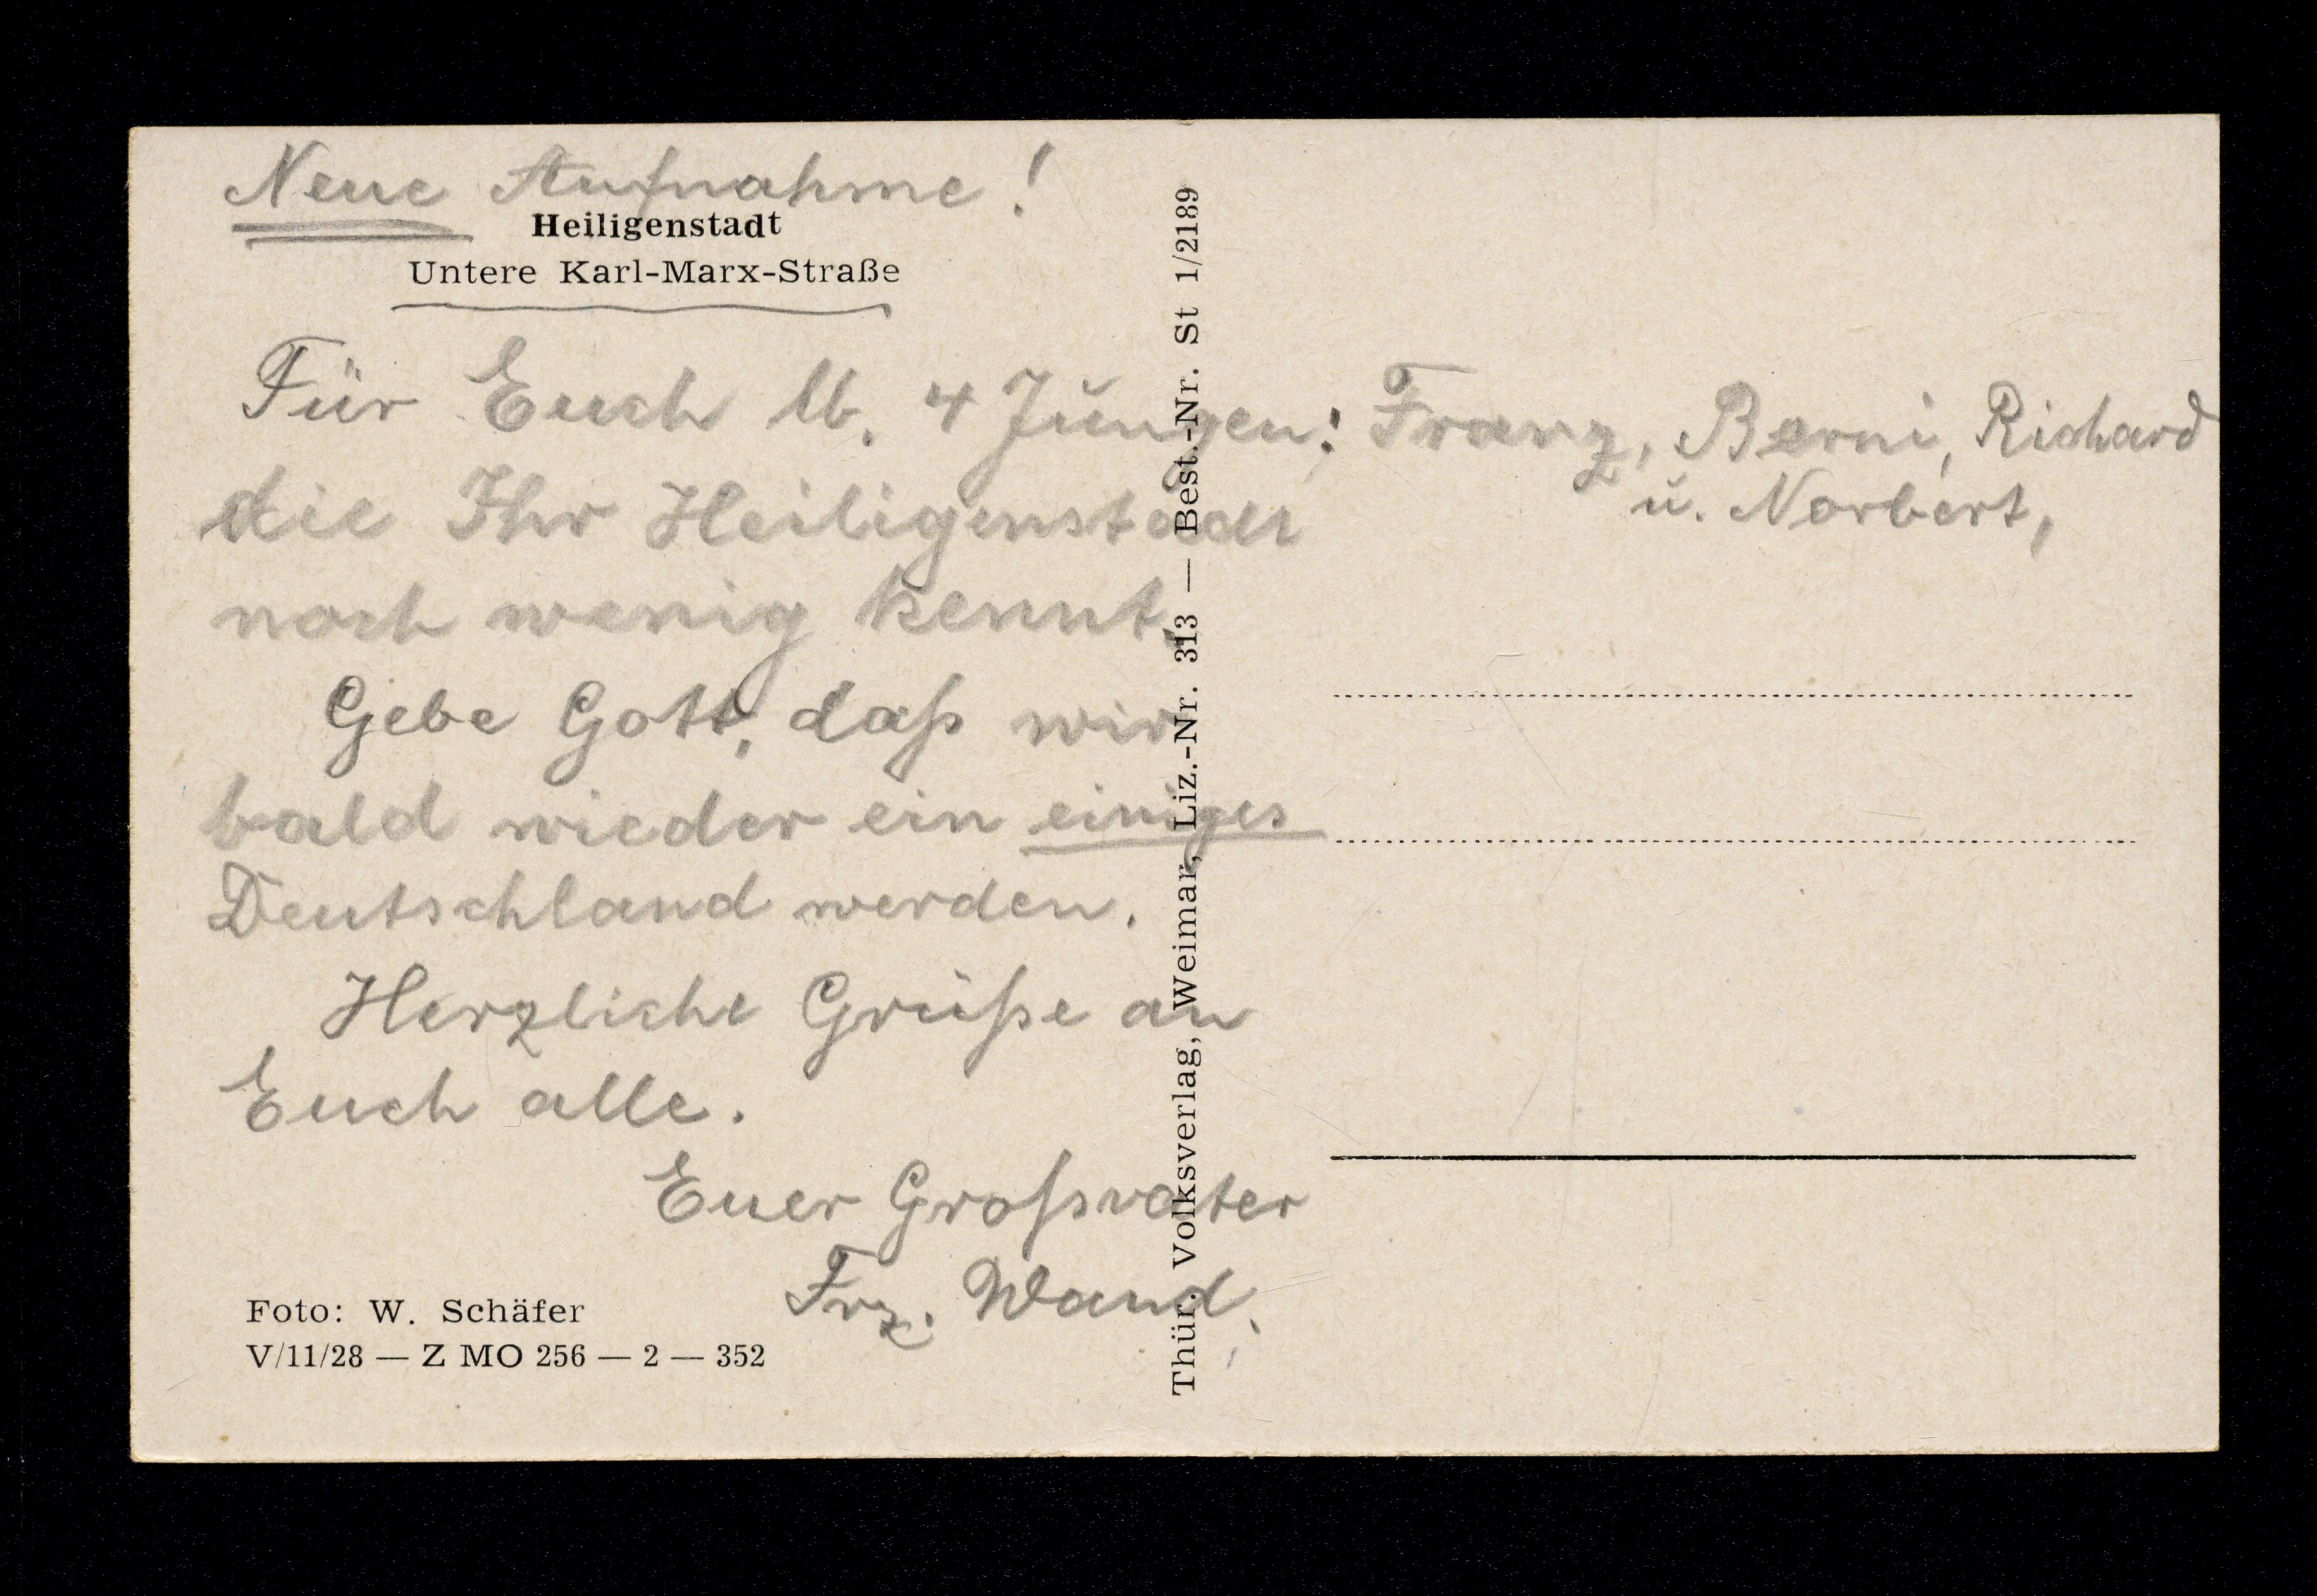 Neue Aufnahme!
Heiligenstadt
Untere Karl-Marx-Straße
Für Euch lb. 4 Jungen: Franz, Berni, Richard
u. Norbert,
die Ihr Heiligenstadt
noch wenig kennt.
Gebe Gott, daß wir
bald wieder ein einiges
Deutschland werden.
Herzliche Grüße an
Euch alle.
Euer Großvater
Frz. Wand.
Foto: W. Schäfer
V/11/28 — Z MO 256 — 2 — 352
Thür. Volksverlag, Weimar, Liz.-Nr. 313 — Best.-Nr. St 1/2189